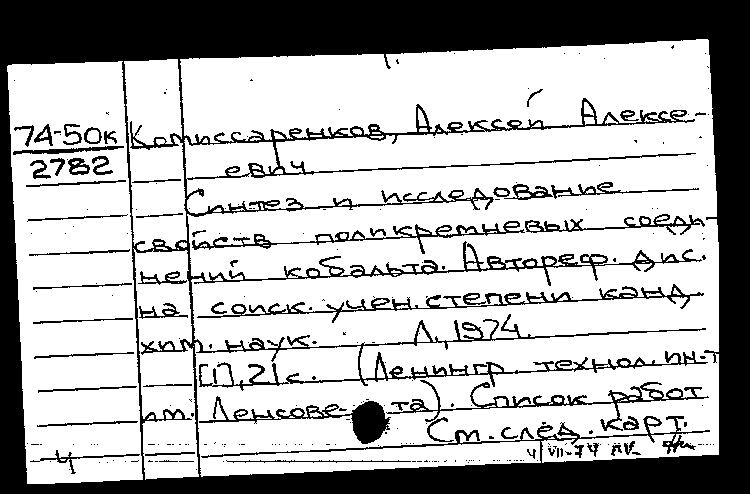 74-50к Комиссаренков, Алексей Алексе-
2782 евич
Синтез и исследование
свойств поликремневых соеди-
нений кобальта. Автореф. дис.
на соиск. учен. степени канд.
хим. наук. Л., 1974.
21 с. (Ленингр. технол. ин-т
им. Ленсове-та). Список работ
См. след. карт.
4
4/VII-74